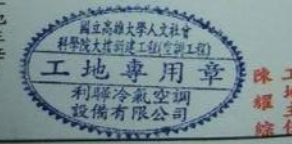 國立高雄大學人文社會
科學院大樓新建工程(空調工程)
工地專用章
利驊冷氣空調
設備有限公司
工地主任
陳耀綜